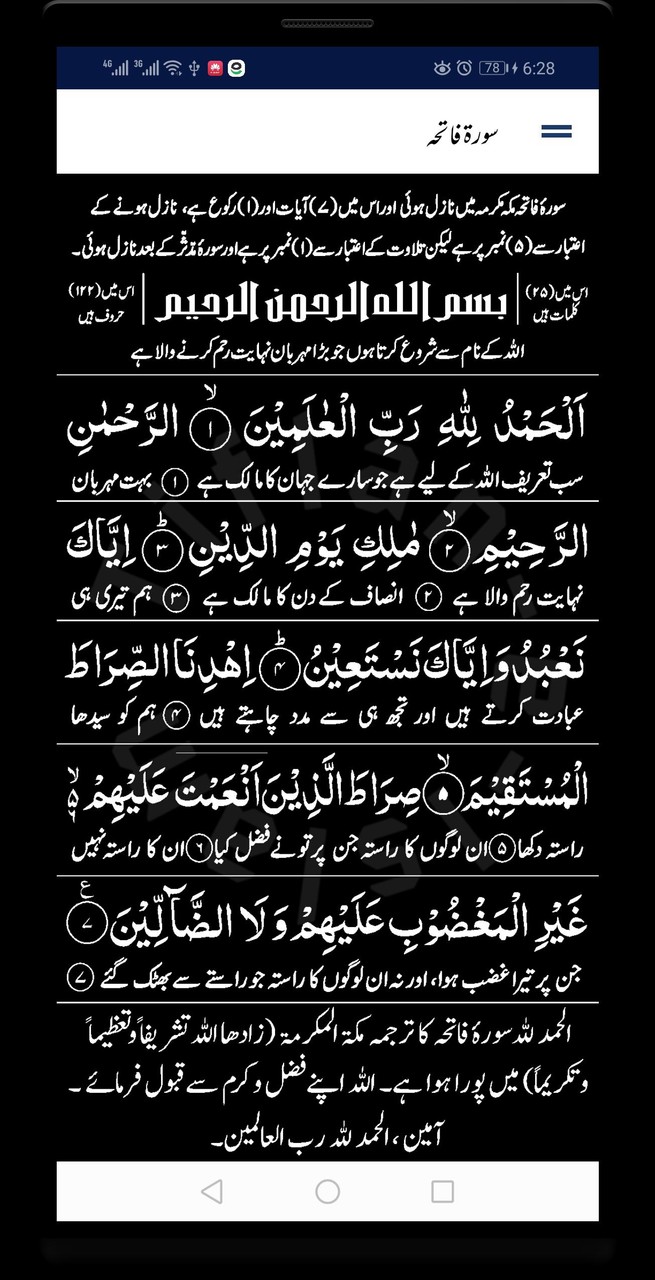 4G 3G 78 6:28
سورۃ فاتحہ
سورۂ فاتحہ مکہ مکرمہ میں نازل ہوئی اور اس میں (۷) آیات اور (۱) رکوع ہے، نازل ہونے کے
اعتبار سے (۵) نمبر پر ہے لیکن تلاوت کے اعتبار سے (۱) نمبر پر ہے اور سورۂ مدثّر کے بعد نازل ہوئی۔
اس میں (۲۵) کلمات ہیں
بسم الله الرحمن الرحيم
اس میں (۱۲۲) حروف ہیں
اللہ کے نام سے شروع کرتا ہوں جو بڑا مہربان نہایت رحم کرنے والا ہے
اَلْحَمْدُ لِلّٰهِ رَبِّ الْعٰلَمِیْنَ ۙ﴿۱﴾ الرَّحْمٰنِ
سب تعریف اللہ کے لیے ہے جو سارے جہان کا مالک ہے ﴿۱﴾ بہت مہربان
الرَّحِیْمِ ۙ﴿۲﴾ مٰلِكِ یَوْمِ الدِّیْنِ ؕ﴿۳﴾ اِیَّاكَ
نہایت رحم والا ہے ﴿۲﴾ انصاف کے دن کا مالک ہے ﴿۳﴾ ہم تیری ہی
نَعْبُدُ وَ اِیَّاكَ نَسْتَعِیْنُ ؕ﴿۴﴾ اِهْدِنَا الصِّرَاطَ
عبادت کرتے ہیں اور تجھ ہی سے مدد چاہتے ہیں ﴿۴﴾ ہم کو سیدھا
الْمُسْتَقِیْمَ ۙ﴿۵﴾ صِرَاطَ الَّذِیْنَ اَنْعَمْتَ عَلَیْهِمْ ۙ۬
راستہ دکھا ﴿۵﴾ ان لوگوں کا راستہ جن پر تو نے فضل کیا ﴿۶﴾ ان کا راستہ نہیں
غَیْرِ الْمَغْضُوْبِ عَلَیْهِمْ وَ لَا الضَّآلِّیْنَ ﴿۷﴾ ع
جن پر تیرا غضب ہوا، اور نہ ان لوگوں کا راستہ جو راستے سے بھٹک گئے ﴿۷﴾
الحمد للہ سورۂ فاتحہ کا ترجمہ مکۃ المکرمۃ (زادھا اللہ تشریفاً وتعظیماً
و تکریماً) میں پورا ہوا ہے۔ اللہ اپنے فضل و کرم سے قبول فرمائے۔
آمین، الحمد للہ رب العالمین۔